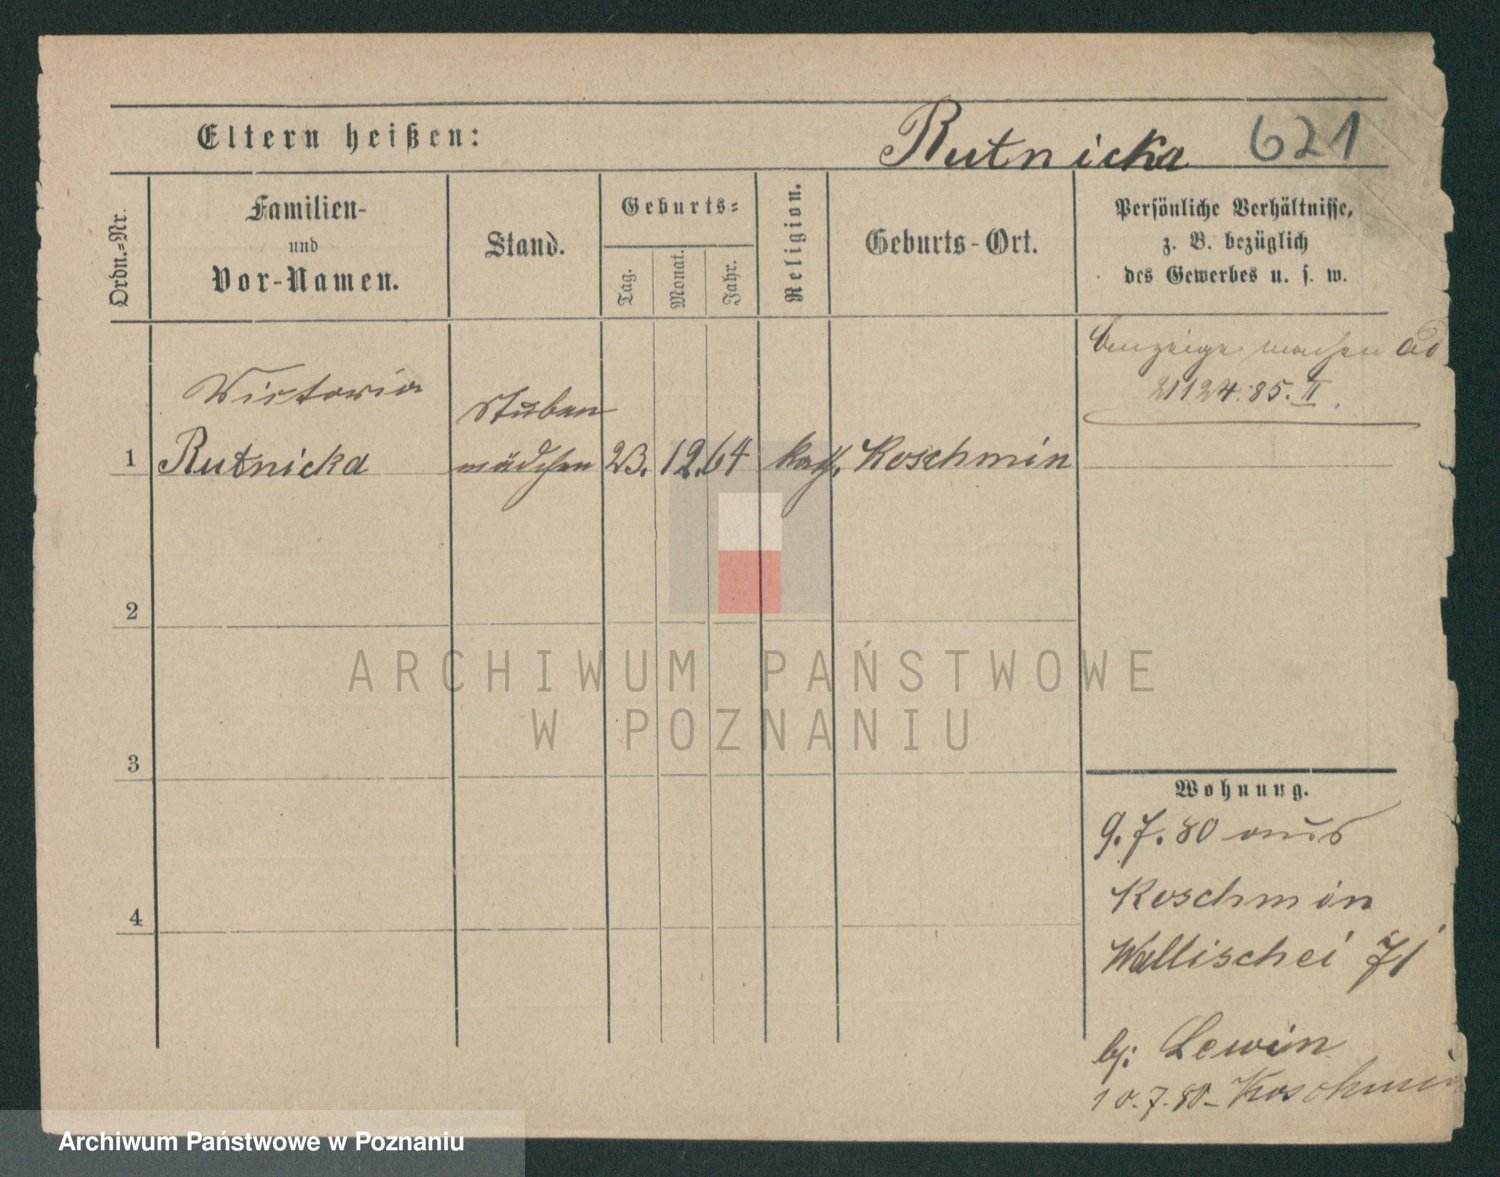 Eltern heißen:
Rutnicka 621
Ordn.-Nr.
Familien-
und
Vor-Namen.
Stand.
Geburts-
Tag.
Monat.
Jahr.
Religion.
Geburts-Ort.
Persönliche Verhältnisse,
z. B. bezüglich
des Gewerbes u. s. w.
machen
21124.85.II.
1
Victoria
Rutnicka
Stuben
mädchen
23. 12. 64
kath.
Koschmin
2
3
4
Wohnung.
9.7.80 aus
Koschmin
Wallischei 71
bj: Lewin
10.7.80 - Koschmin
ARCHIWUM PAŃSTWOWE
W POZNANIU
Archiwum Państwowe w Poznaniu